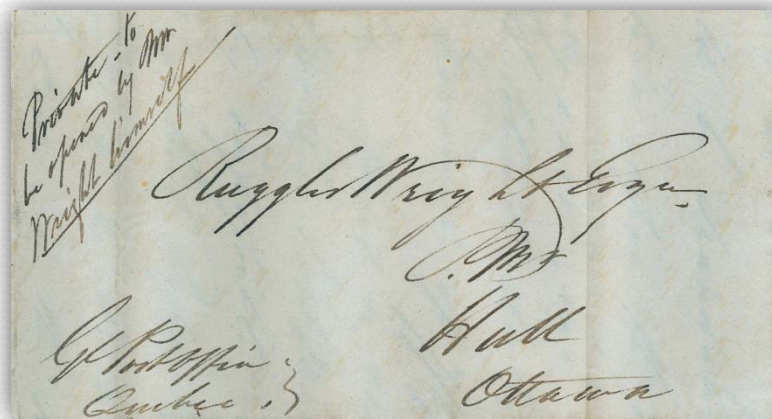 Private - to
be opened by Mr
Wright himself
Ruggles Wright Esqr
P. Mr
Hull
Ottawa
Gl Post Office
Quebec